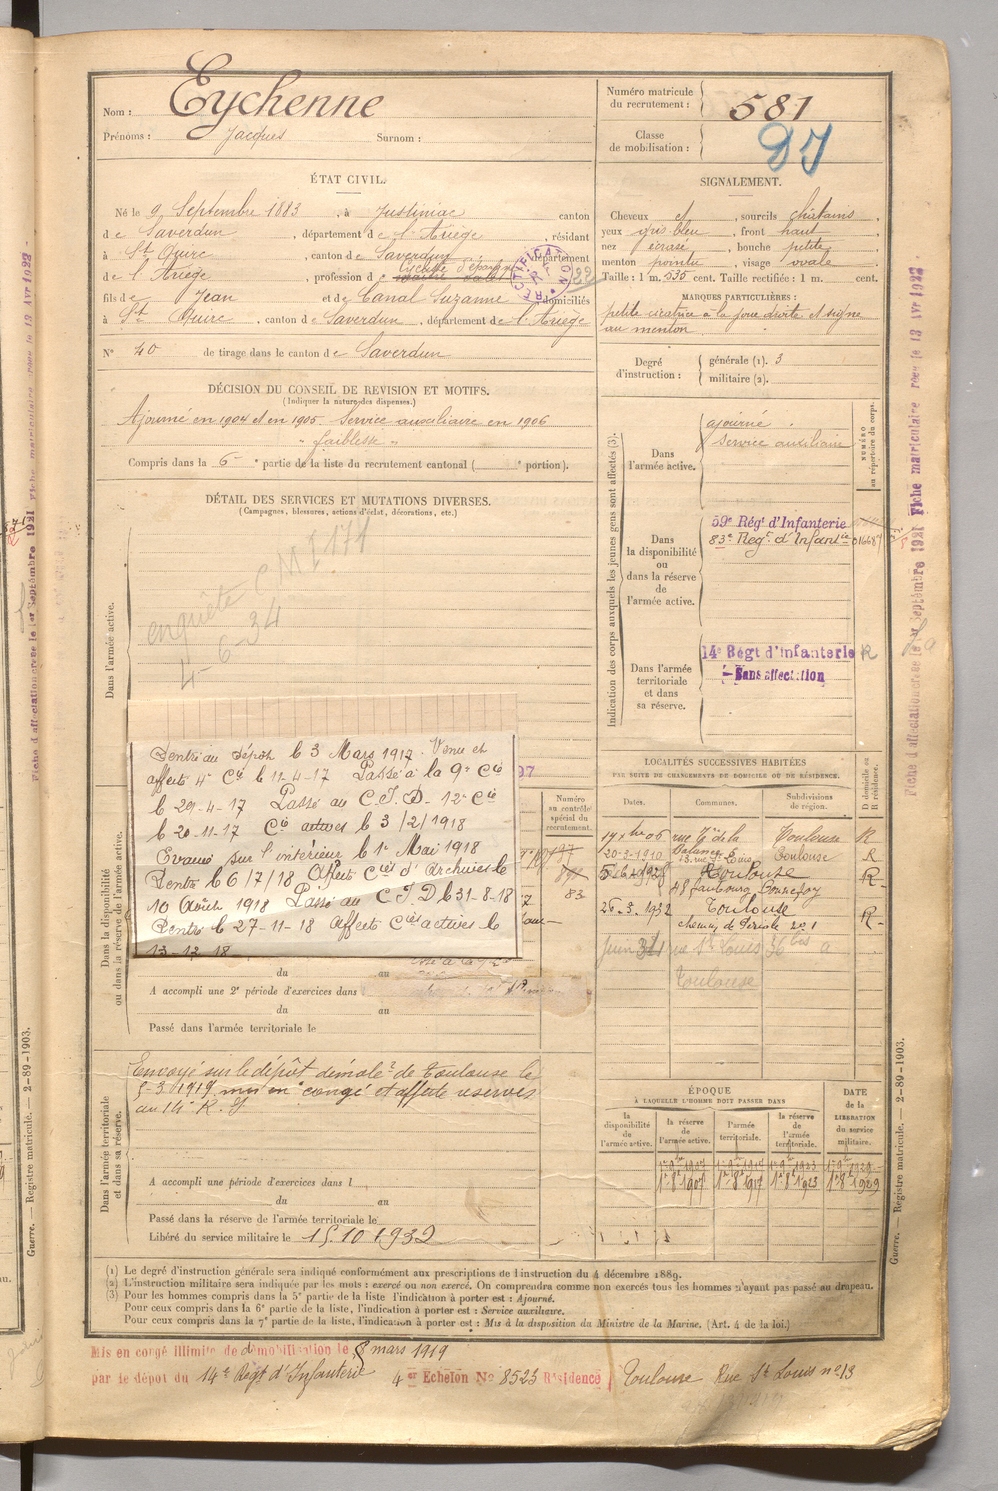 Nom : Eychenne
Prénoms : Jacques Surnom :
Numéro matricule du recrutement : 581
Classe de mobilisation :
ÉTAT CIVIL.
Né le 9 Septembre 1883, à Justiniac canton
de Saverdun, département de l'Ariège, résidant
à St Quirc, canton de Saverdun département
de l'Ariège, profession de
fils de Jean et de Canal Suzanne domiciliés
à St Quirc, canton de Saverdun, département de l'Ariège
N° 40 de tirage dans le canton de Saverdun
RECTIFICATION
SIGNALEMENT.
Cheveux et, sourcils chatains,
yeux gris bleu, front haut,
nez écrasé, bouche petite,
menton pointu, visage ovale
Taille : 1 m. 535 cent. Taille rectifiée : 1 m. cent.
MARQUES PARTICULIÈRES :
petite cicatrice à la joue droite et signe
au menton
Degré d'instruction : générale (1). 3
militaire (2).
DÉCISION DU CONSEIL DE REVISION ET MOTIFS.
(Indiquer la nature des dispenses.)
Ajourné en 1904 et en 1905 - Service auxiliaire en 1906
" faiblesse "
Compris dans la 6e partie de la liste du recrutement cantonal ( e portion).
DÉTAIL DES SERVICES ET MUTATIONS DIVERSES.
(Campagnes, blessures, actions d'éclat, décorations, etc.)
Dans l'armée active.
enquête
4-6-34
Indication des corps auxquels les jeunes gens sont affectés (3).
NUMÉRO au répertoire du corps.
Dans l'armée active.
ajourné
Service auxiliaire
Dans la disponibilité ou dans la réserve de l'armée active.
59e Rég.t d'Infanterie
83e Reg.t d'Infantie
Dans l'armée territoriale et dans sa réserve.
14e Régt d'Infanterie
Sans affectation
Dans la disponibilité ou dans la réserve de l'armée active.
Rentré au dépôt le 3 Mars 1917. Venu et
affecté 4e Cie le 11-4-17 Passé à la 9e Cie
le 29-4-17 Passé au C.I.D. 12e Cie
le 20-11-17 Cie actives le 3/2/1918
Evacué sur l'intérieur le 1er Mai 1918
Rentré le 6/7/18 Affecté Cies d'Archives le
10 Août 1918 Passé au C.I.D le 31-8-18
Rentré le 27-11-18 Affecté Cies actives le
13-12-18
du au
A accompli une 2e période d'exercices dans
du au
Passé dans l'armée territoriale le
Numéro au contrôle spécial du recrutement.
83
LOCALITÉS SUCCESSIVES HABITÉES
PAR SUITE DE CHANGEMENTS DE DOMICILE OU DE RÉSIDENCE.
Dates. Communes. Subdivisions de région. D domicile ou R résidence.
17 xbre 06 rue de la Balance 5 Toulouse R
20-3-1910 13 rue St Louis Toulouse R
Toulouse R
48 faubourg Bonnefoy
26.3.1932 Toulouse R
chemin de Périole 201
Toulouse
Dans l'armée territoriale et dans sa réserve.
Envoyé sur le dépôt démobre de Toulouse le
5-3-1919 mis en congé et affecté réserves
au 14e R.I.
A accompli une période d'exercices dans l
du au
Passé dans la réserve de l'armée territoriale le
Libéré du service militaire le 15.10.1932
ÉPOQUE
À LAQUELLE L'HOMME DOIT PASSER DANS
la disponibilité de l'armée active.
la réserve de l'armée active.
l'armée territoriale.
la réserve de l'armée territoriale.
DATE de la LIBÉRATION du service militaire.
(1) Le degré d'instruction générale sera indiqué conformément aux prescriptions de l'instruction du 4 décembre 1889.
(2) L'instruction militaire sera indiquée par les mots : exercé ou non exercé. On comprendra comme non exercés tous les hommes n'ayant pas passé au drapeau.
(3) Pour les hommes compris dans la 5e partie de la liste l'indication à porter est : Ajourné.
Pour ceux compris dans la 6e partie de la liste, l'indication à porter est : Service auxiliaire.
Pour ceux compris dans la 7e partie de la liste, l'indication à porter est : Mis à la disposition du Ministre de la Marine. (Art. 4 de la loi.)
Mis en congé illimité de démobilisation le 5 mars 1919
par le dépot du 14e Regt d'Infanterie 4e Echelon No 8523 Résidence Toulouse Rue St Louis no 13
Guerre. — Registre matricule. — 2-89-1903.
Guerre. — Registre matricule. — 2-89-1903.
Fiche d'affectation créée le 1er Septembre 1921 Fiche matriculaire reçue le 13 Avr 1922